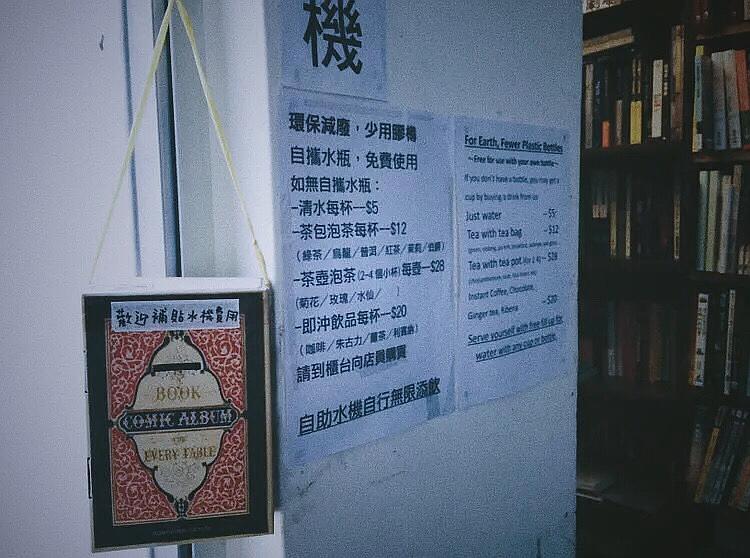 機
環保減廢，少用膠樽
自攜水瓶，免費使用
如無自攜水瓶：
-清水每杯—$5
-茶包泡茶每杯—$12
（綠茶／烏龍／普洱／紅茶／茉莉／伯爵）
-茶壺泡茶(2-4 個小杯) 每壺—$28
(菊花／玫瑰／水仙／ )
-即沖飲品每杯—$20
（咖啡／朱古力／薑茶／利賓納）
請到櫃台向店員購買
自助水機自行無限添飲
For Earth, Fewer Plastic Bottles
~Free for use with your own bottle~
If you don't have a bottle, you may get a
cup by buying a drink from us
Just water –$5
Tea with tea bag –$12
Tea with tea pot (for 2-4) –$28
Instant Coffee, Chocolate,
Ginger tea, Ribena –$20
Serve yourself with free fill up for
water with any cup or bottle.
歡迎補貼水機費用
BOOK
COMIC ALBUM
FOR
EVERY TABLE